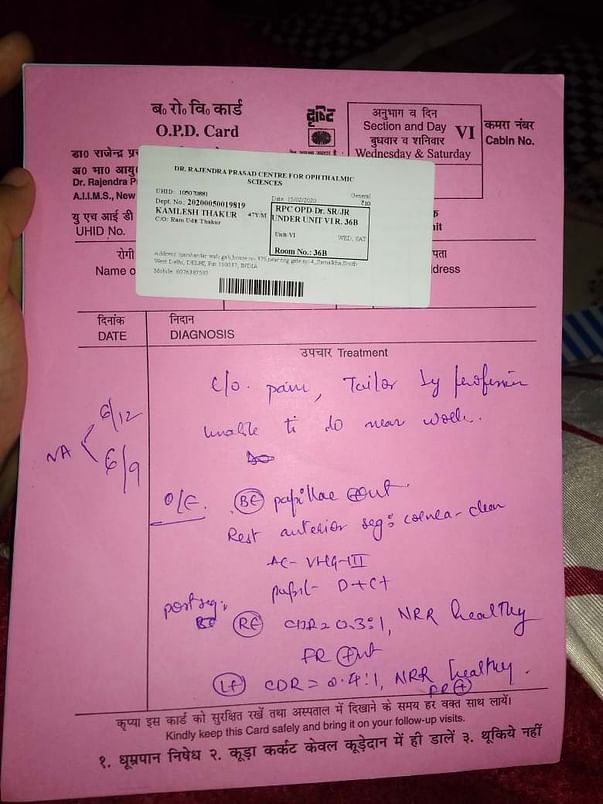 ब० रो० वि० कार्ड
O.P.D. Card
दृष्टि
अनुभाग व दिन
Section and Day VI
बुधवार व शनिवार
Wednesday & Saturday
कमरा नंबर
Cabin No.
डा० राजेन्द्र
अ० भा० आयु
Dr. Rajendra P
A.I.I.M.S., New
यु एच आई डी
UHID No.
रोगी
Name o
पता
dress
DR. RAJENDRA PRASAD CENTRE FOR OPHTHALMIC
SCIENCES
UHID: 105070881
Dept. No. 20200050019819
KAMLESH THAKUR 47Y/M
C/O: Ram Udit Thakur
Date 15/02/2020
General
₹10
RPC OPD Dr. SR/JR
UNDER UNIT VI R. 36B
Unit-VI
WED, SAT
Room No.: 36B
West Delhi, DELHI, Pin:110037, INDIA
दिनांक
DATE
निदान
DIAGNOSIS
उपचार Treatment
c/o. pain, Tailor by profession
unable to do near work.
VA 6/12
6/9
O/E. BE papillae +nt.
Rest anterior seg: cornea - clear
AC - VHG-III
pupil - D+C+
post seg:
RE CDR = 0.3:1, NRR healthy
FR +nt
LE CDR = 0.4:1, NRR healthy.
FR +
कृप्या इस कार्ड को सुरक्षित रखें तथा अस्पताल में दिखाने के समय हर वक्त साथ लायें।
Kindly keep this Card safely and bring it on your follow-up visits.
१. धूम्रपान निषेध २. कूड़ा कर्कट केवल कूड़ेदान में ही डालें ३. थूकिये नहीं